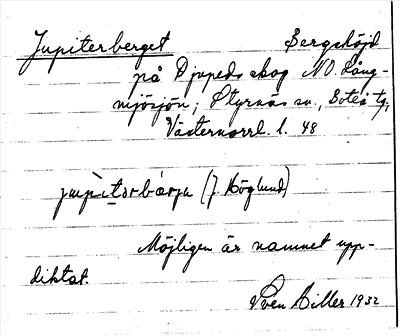 Jupiterberget Bergshöjd
på Djupedsskog NO. Lång-
mjösjön, Styrnäs sn., Boteå tg,
Västernorrl. l. 48
(J. Höglund)
Möjligen är namnet upp-
diktat.
Sven Hiller 1932